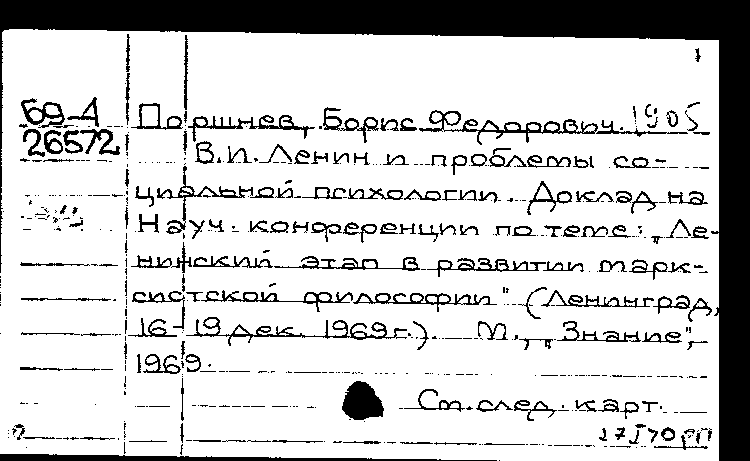 1
69-4 Поршнев, Борис Федорович. 1905
26572 В.И. Ленин и проблемы со-
циальной психологии. Доклад на
Науч. конференции по теме: „Ле-
нинский этап в развитии марк-
систской философии" (Ленинград,
16-19 дек. 1969 г.). М., „Знание",
1969.
См. след. карт.
17 I 70 РП